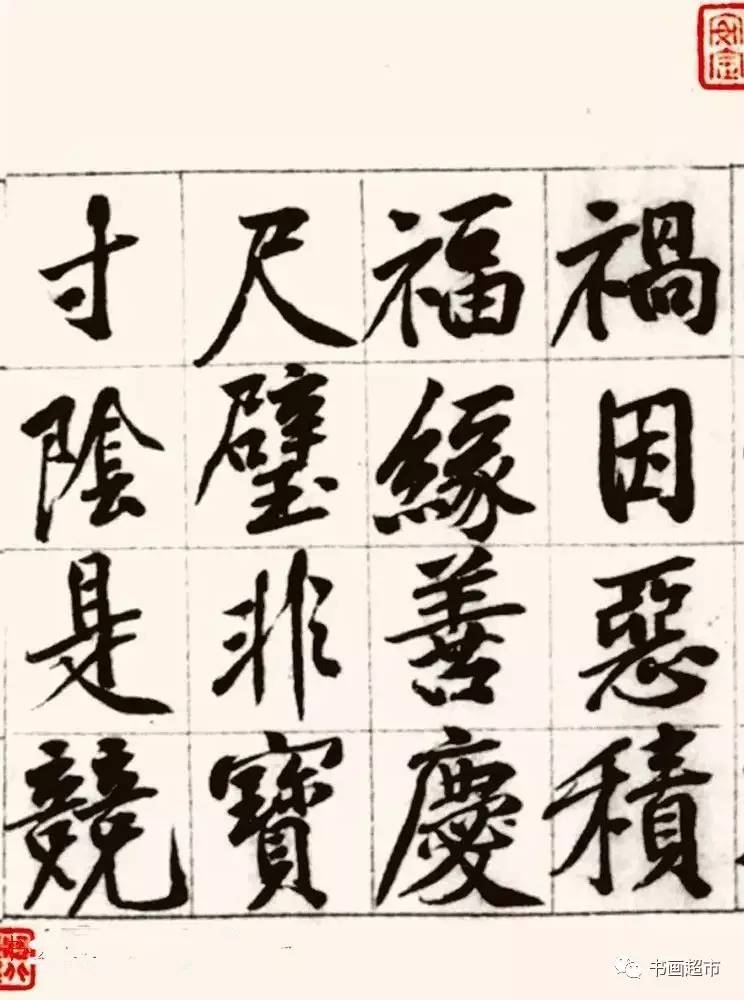 禍因惡積
福緣善慶
尺璧非寶
寸陰是競
书画超市